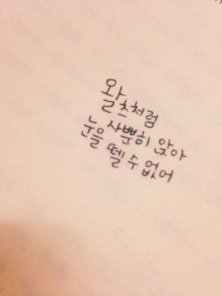 왈츠처럼
사뿐히 앉아
눈을 뗄 수 없어